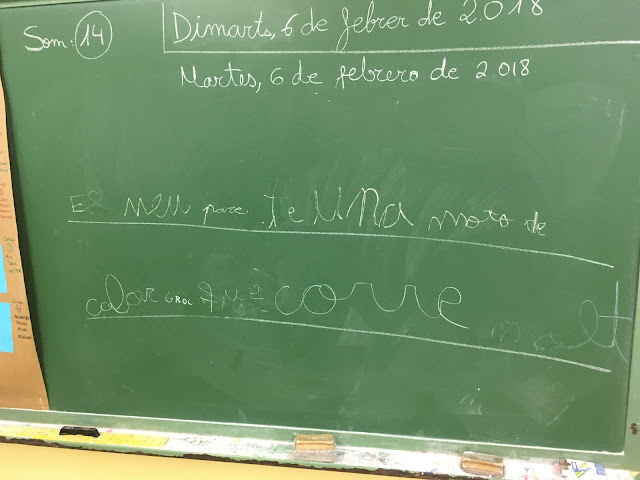 Som: 14
Dimarts, 6 de febrer de 2.018
Martes, 6 de febrero de 2.018
El meu pare te una moto de
color groc que corre molt